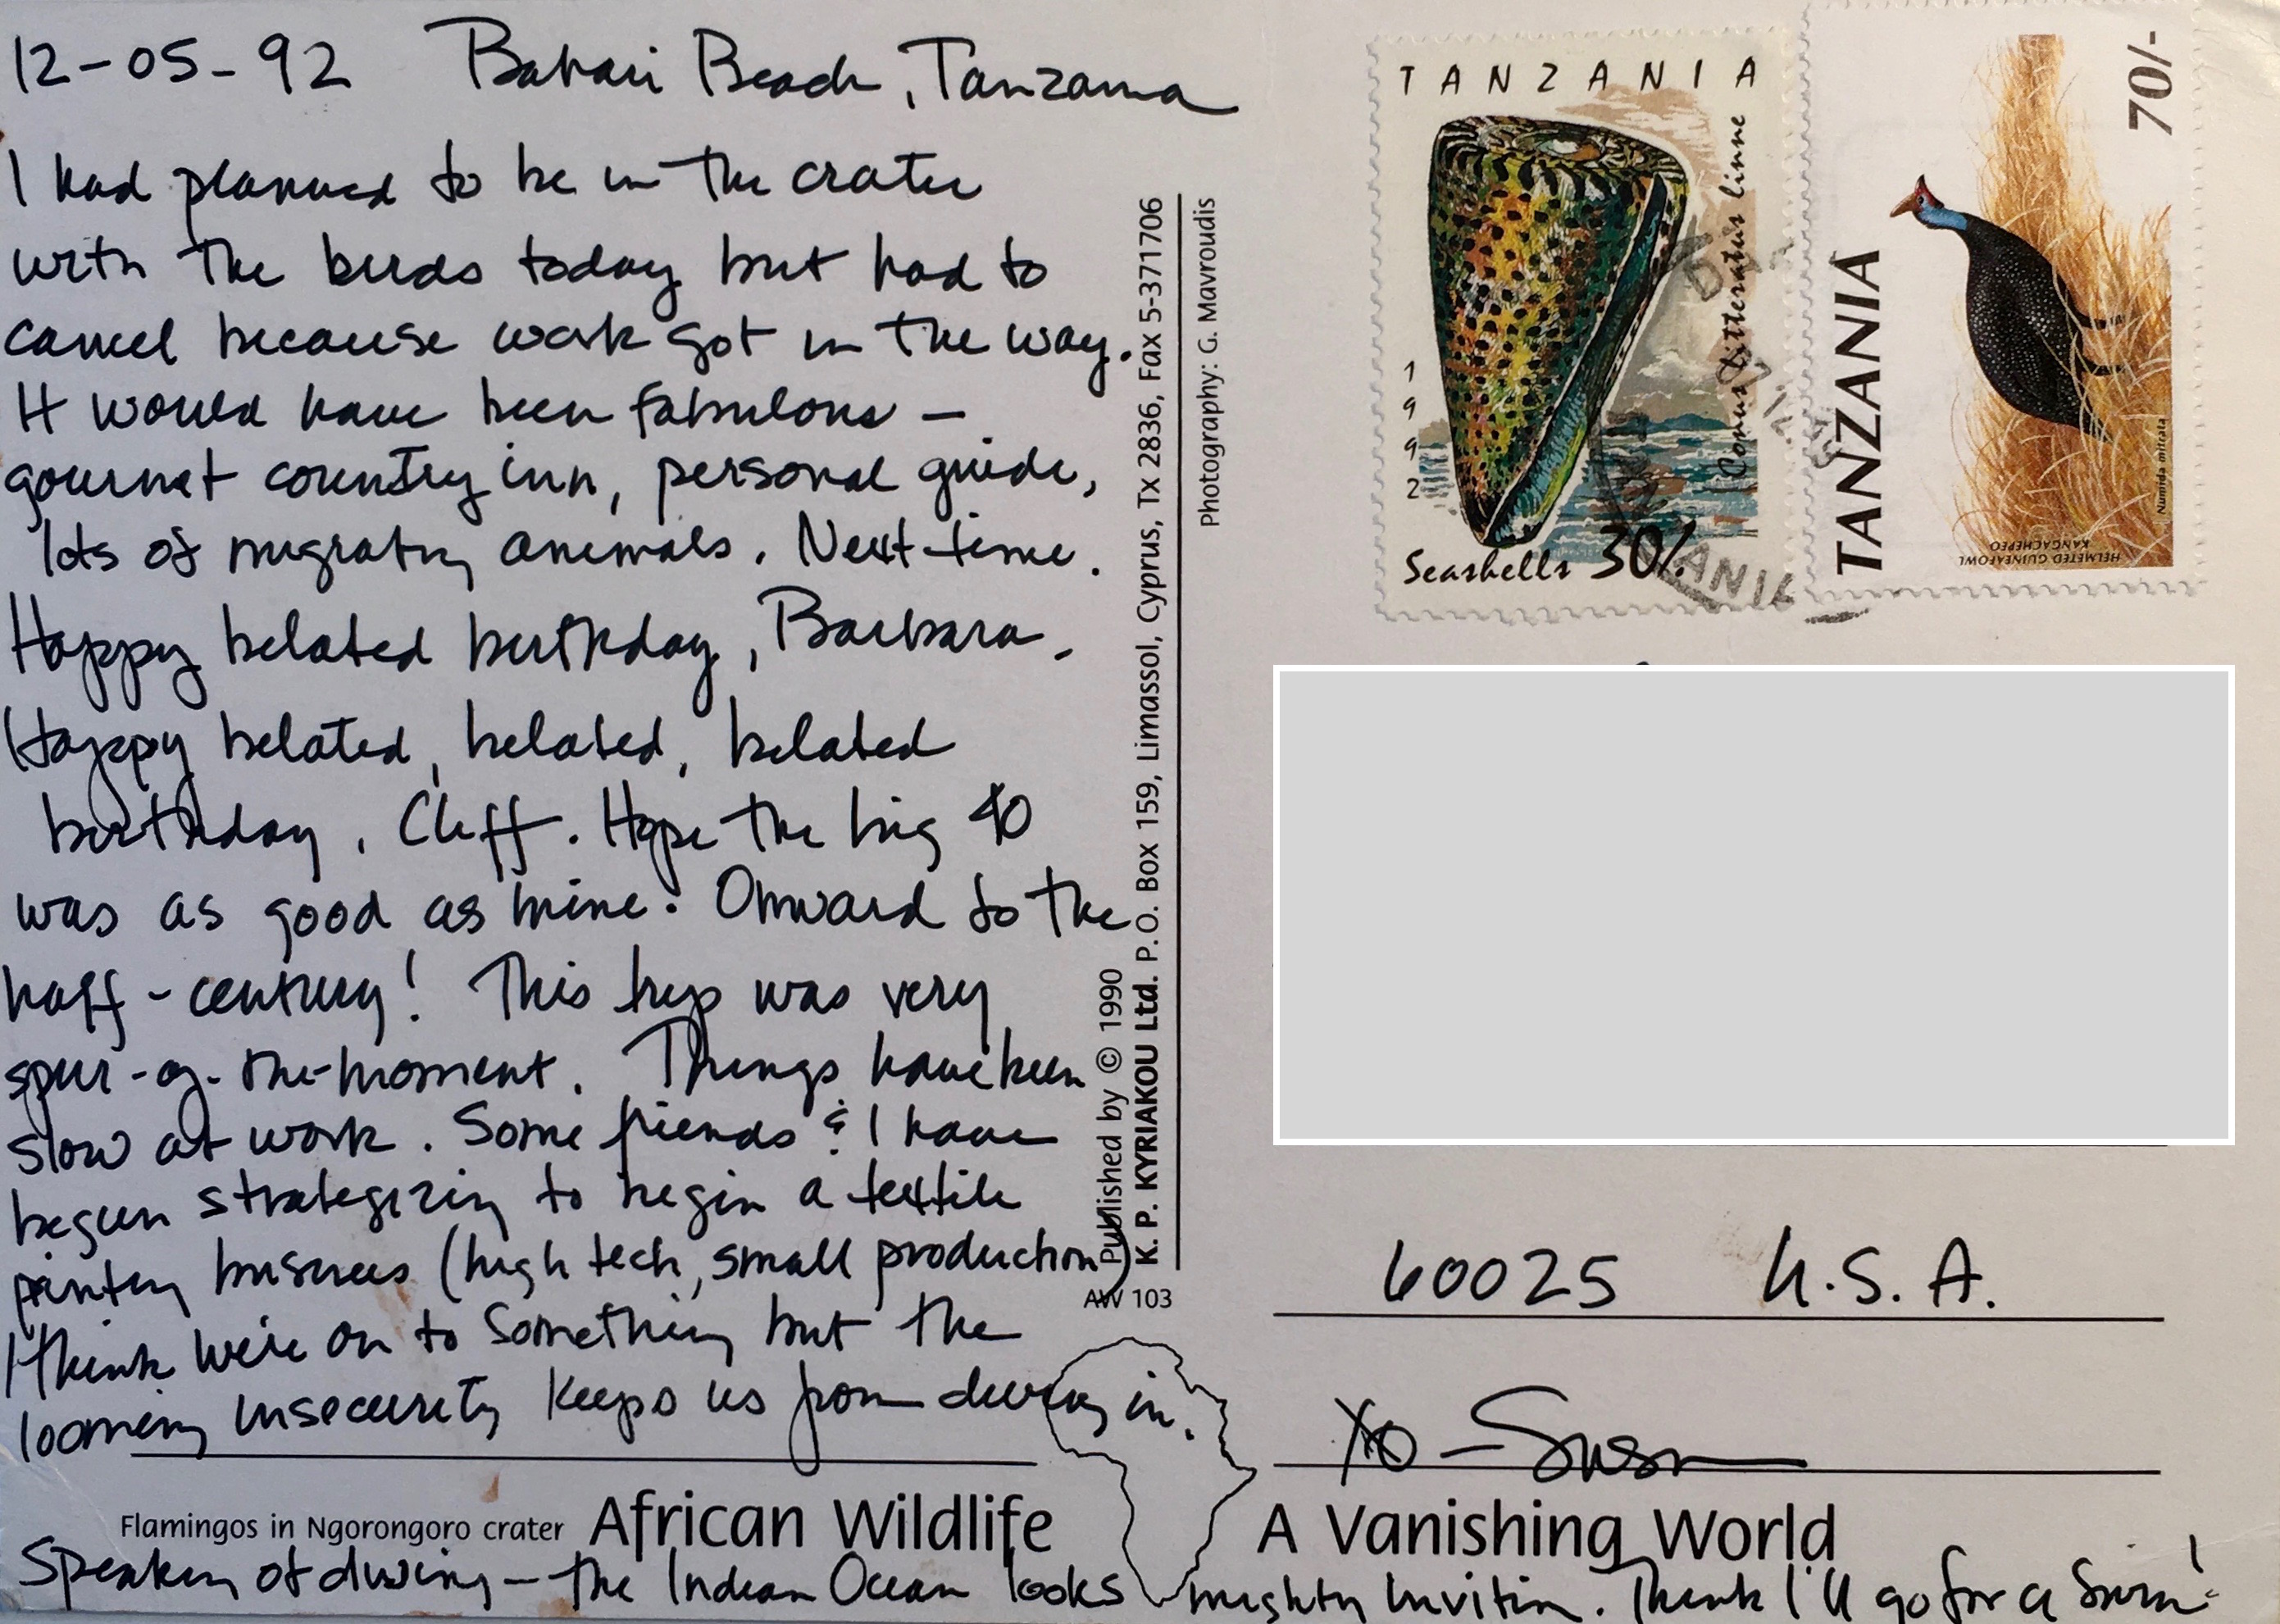 12-05-92 Bahari Beach, Tanzania
I had planned to be in the crater
with the birds today but had to
cancel because work got in the way.
It would have been fabulous —
gourmet country inn, personal guide,
lots of migrating animals. Next time.
Happy belated birthday, Barbara.
Happy belated, belated, belated
birthday, Cliff. Hope the big 40
was as good as mine. Onward to the
half-century! This trip was very
spur-of-the-moment. Things have been
slow at work. Some friends & I have
begun strategizing to begin a textile
printing business (high tech, small production)
I think we're on to something but the
looming insecurity keeps us from diving in.
Flamingos in Ngorongoro crater African Wildlife A Vanishing World
Speaking of diving — the Indian Ocean looks mighty inviting. Think I'll go for a swim!
Published by © 1990
K. P. KYRIAKOU Ltd. P.O. Box 159, Limassol, Cyprus, Tx 2836, Fax 5-371706
Photography: G. Mavroudis
AW 103
TANZANIA
Conus litteratus linne
1992
Seashells 30/-
TANZANIA
70/-
HELMETED GUINEAFOWL
KANGACHEPEO
Numida mitrata
60025 U.S.A.
XO — Susan